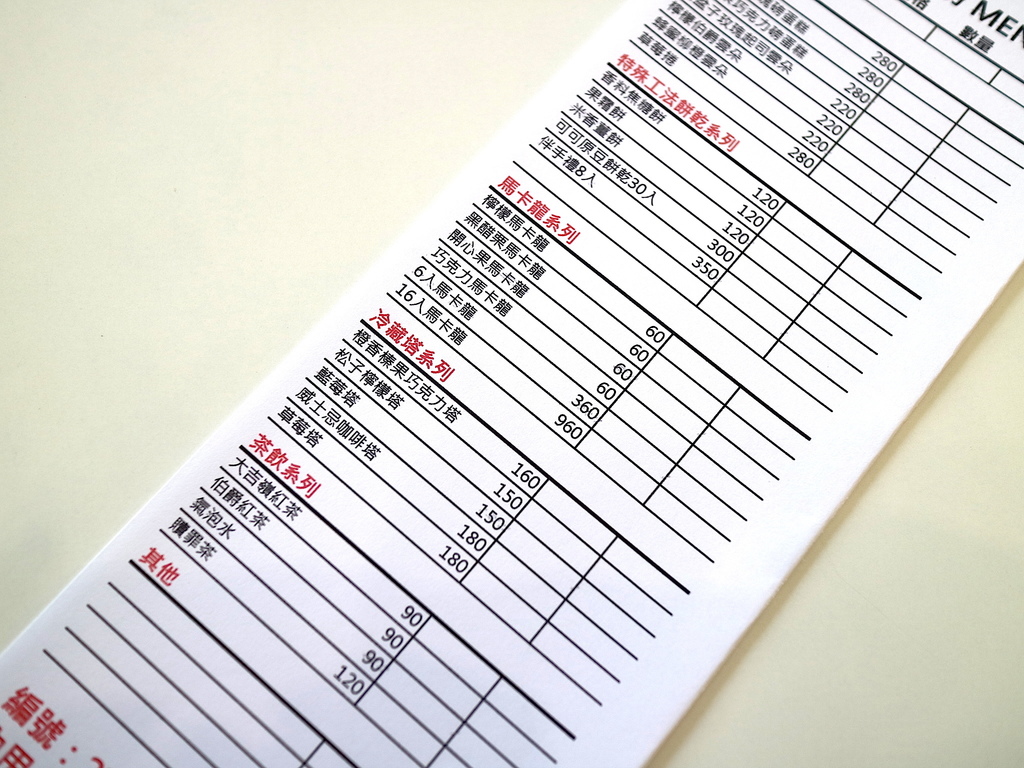 MEN
數量
280
巧克力磚蛋糕 280
盒子玫瑰起司雲朵 280
檸檬伯爵雲朵 220
蜂蜜檸檬雲朵 220
草莓捲 280
特殊工法餅乾系列
香料焦糖餅 120
果醬餅 120
米香薑餅 120
可可原豆餅乾30入 300
伴手禮8入 350
馬卡龍系列
檸檬馬卡龍 60
黑醋栗馬卡龍 60
開心果馬卡龍 60
巧克力馬卡龍 60
6入馬卡龍 360
16入馬卡龍 960
冷藏塔系列
橙香榛果巧克力塔 160
松子檸檬塔 150
藍莓塔 150
威士忌咖啡塔 180
草莓塔 180
茶飲系列
大吉嶺紅茶 90
伯爵紅茶 90
氣泡水 90
贖罪茶 120
其他
編號：